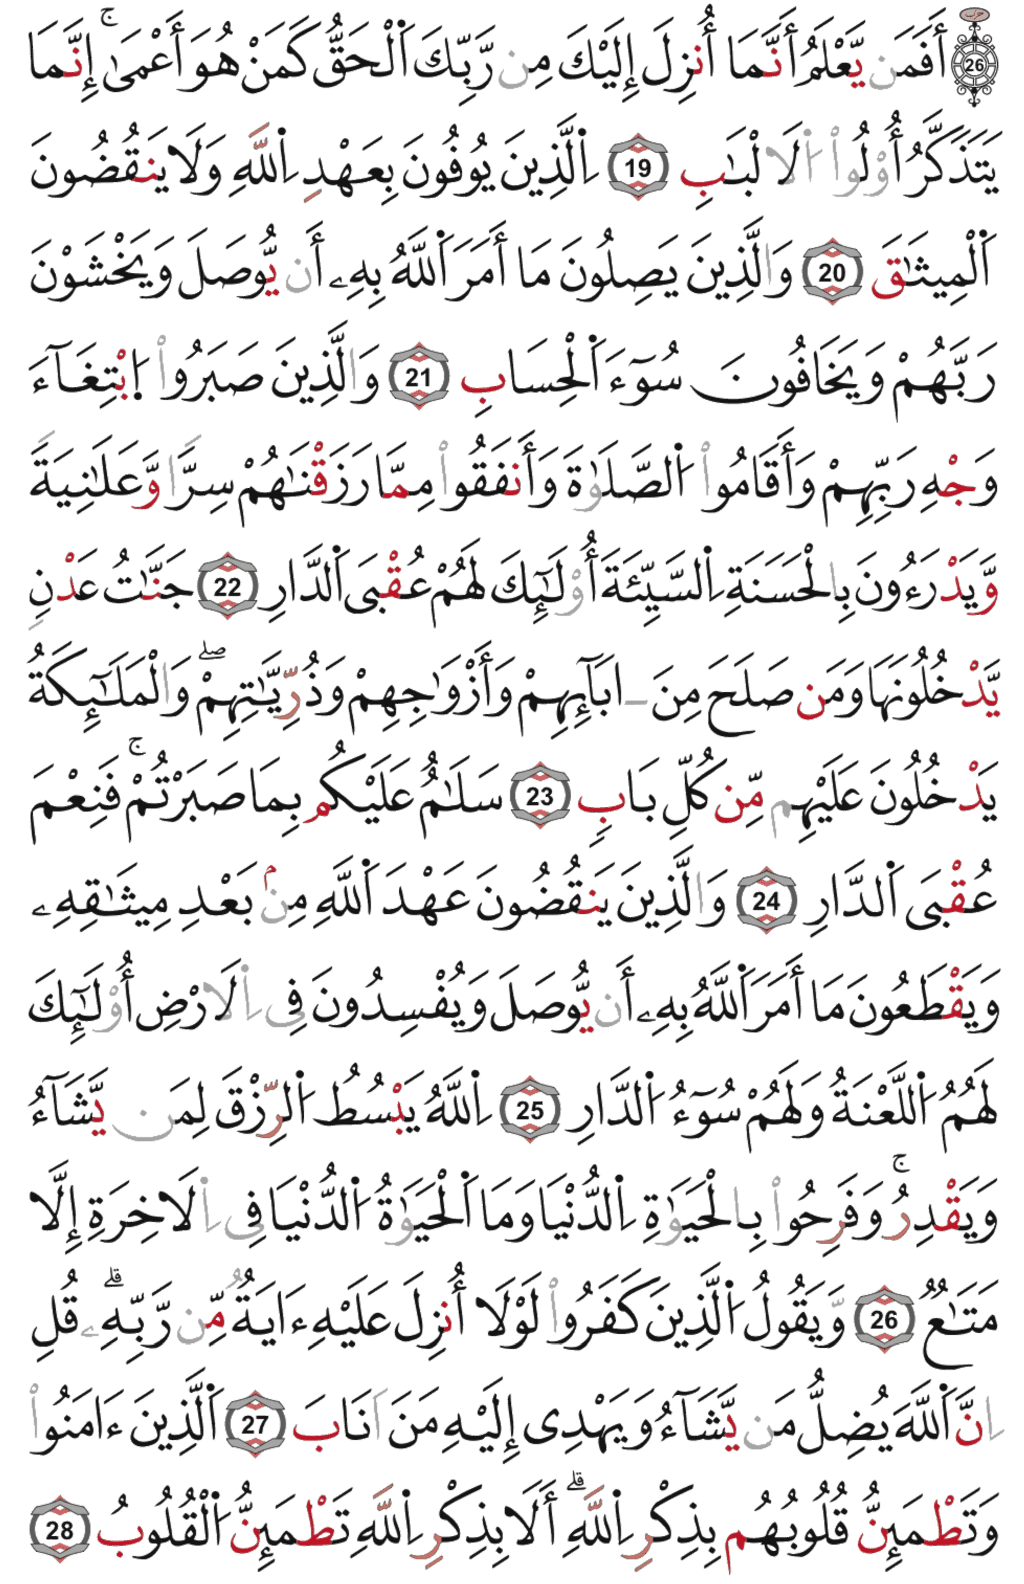 حزب 26 أَفَمَن يَّعْلَمُ أَنَّمَا أُنزِلَ إِلَيْكَ مِن رَّبِّكَ اَ۬لْحَقُّ كَمَنْ هُوَ أَعْمَىٰٓۚ إِنَّمَا
يَتَذَكَّرُ أُوْلُواْ اُ۬لَالْبَٰبِ 19 اِ۬لذِينَ يُوفُونَ بِعَهْدِ اِ۬للَّهِ وَلَا يَنقُضُونَ
اَ۬لْمِيثَٰقَ 20 وَالذِينَ يَصِلُونَ مَا أَمَرَ اَ۬للَّهُ بِهِۦ أَن يُّوصَلَ وَيَخْشَوْنَ
رَبَّهُمْ وَيَخَافُونَ سُوٓءَ اَ۬لْحِسَابِ 21 وَالذِينَ صَبَرُواْ اُ۪بْتِغَآءَ
وَجْهِ رَبِّهِمْ وَأَقَامُواْ اُ۬لصَّلَوٰةَ وَأَنفَقُواْ مِمَّا رَزَقْنَٰهُمْ سِرّاً وَّعَلَٰنِيَةً
وَّيَدْرَءُونَ بِالْحَسَنَةِ اِ۬لسَّيِّئَةَ أُوْلَٰٓئِكَ لَهُمْ عُقْبَى اَ۬لدَّارِ 22 جَنَّٰتُ عَدْنٍ
يَّدْخُلُونَهَا وَمَن صَلَحَ مِنَ ـ اٰبَآئِهِمْ وَأَزْوَٰجِهِمْ وَذُرِّيَّٰتِهِمْۖ وَالْمَلَٰٓئِكَةُ
يَدْخُلُونَ عَلَيْهِم مِّن كُلِّ بَابٍ 23 سَلَٰمٌ عَلَيْكُم بِمَا صَبَرْتُمْۚ فَنِعْمَ
عُقْبَى اَ۬لدَّارِ 24 وَالذِينَ يَنقُضُونَ عَهْدَ اَ۬للَّهِ مِنۢ بَعْدِ مِيثَٰقِهِۦ
وَيَقْطَعُونَ مَا أَمَرَ اَ۬للَّهُ بِهِۦ أَن يُّوصَلَ وَيُفْسِدُونَ فِى اِ۬لَارْضِ أُوْلَٰٓئِكَ
لَهُمُ اُ۬للَّعْنَةُ وَلَهُمْ سُوٓءُ اُ۬لدَّارِ 25 اِ۬للَّهُ يَبْسُطُ اُ۬لرِّزْقَ لِمَن يَّشَآءُ
وَيَقْدِرُۚ وَفَرِحُواْ بِالْحَيَوٰةِ اِ۬لدُّنْيَا وَمَا اَ۬لْحَيَوٰةُ اُ۬لدُّنْيَا فِى اِ۬لَاخِرَةِ إِلَّا
مَتَٰعٌ 26 وَيَقُولُ اُ۬لذِينَ كَفَرُواْ لَوْلَا أُنزِلَ عَلَيْهِ ءَايَةٌ مِّن رَّبِّهِۦۗ قُلِ
اِنَّ اَ۬للَّهَ يُضِلُّ مَن يَّشَآءُ وَيَهْدِى إِلَيْهِ مَنَ اَنَابَ 27 اَ۬لذِينَ ءَامَنُواْ
وَتَطْمَئِنُّ قُلُوبُهُم بِذِكْرِ اِ۬للَّهِۗ أَلَا بِذِكْرِ اِ۬للَّهِ تَطْمَئِنُّ اُ۬لْقُلُوبُ 28